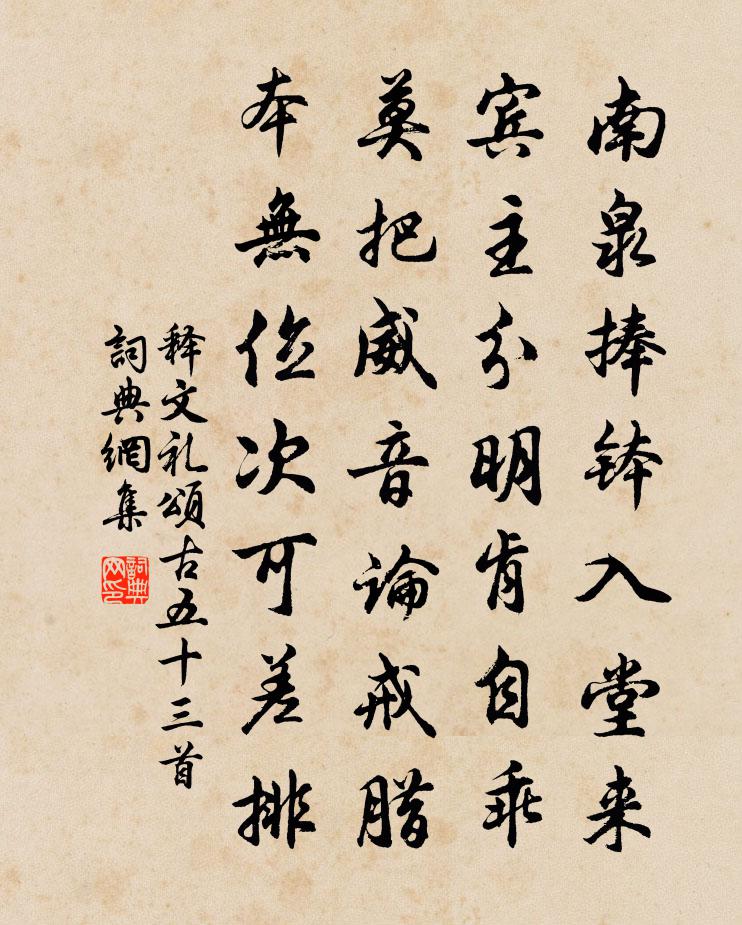 南泉捧鉢入堂来
賓主分明肯自乖
莫把威音論戒腊
本無位次可差排
释文礼頌古五十三首
詞典網集
詞典网印